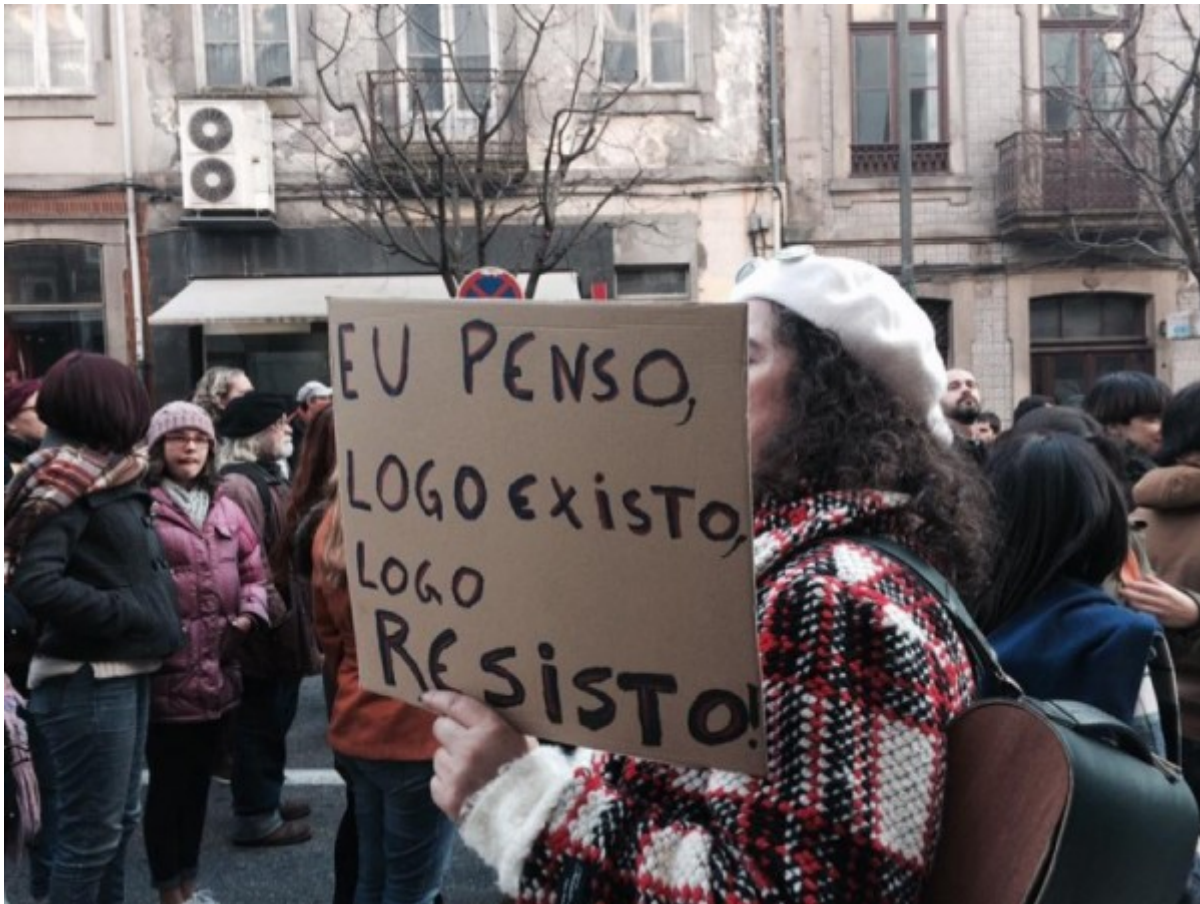 EU PENSO,
LOGO EXiSTO,
LOGO
RESiSTO!